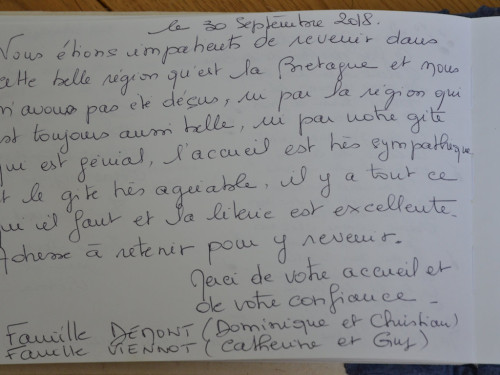 le 30 Septembre 2018.
Nous étions impatients de revenir dans
cette belle région qu'est la Bretagne et nous
n'avons pas été déçus, ni par la région qui
est toujours aussi belle, ni par votre gîte
qui est génial, l'accueil est très sympathique
et le gîte très agréable, il y a tout ce
qu'il faut et la literie est excellente.
Adresse à retenir pour y revenir.
Merci de votre accueil et
de votre confiance.
Famille DEMONT (Dominique et Christian)
Famille VIENNOT (Catherine et Guy)